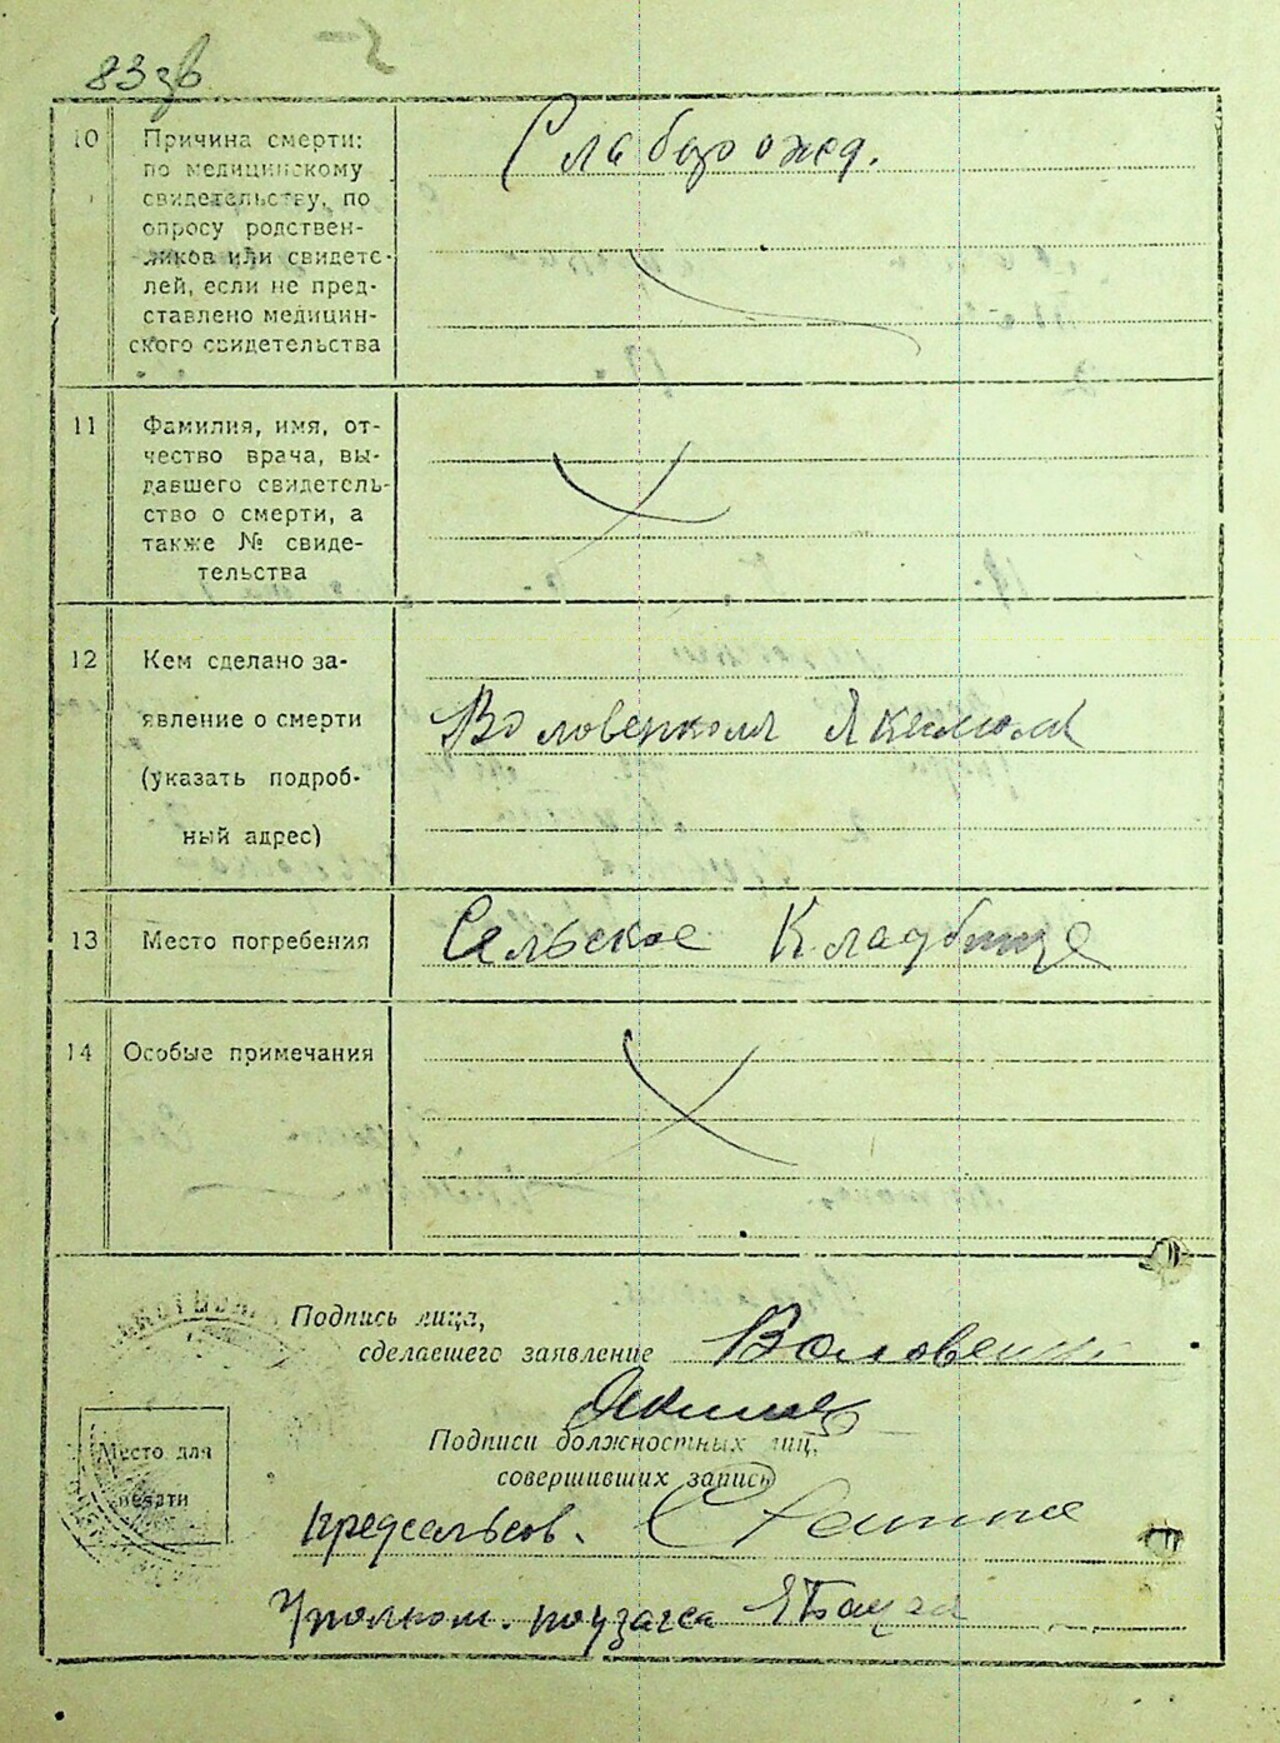 83зв
10 Причина смерти:
по медицинскому
свидетельству, по
опросу родствен-
ников или свидете-
лей, если не пред-
ставлено медицин-
ского свидетельства
Слаборожд.
11 Фамилия, имя, от-
чество врача, вы-
давшего свидетель-
ство о смерти, а
также № свиде-
тельства
12 Кем сделано за-
явление о смерти
(указать подроб-
ный адрес)
Воловенком Якимом
13 Место погребения
Сельское Кладбище
14 Особые примечания
Подпись лица,
сделавшего заявление Воловенко
Яким
Подписи должностных лиц,
совершивших запись
Место для
печати
предсельсов.
Уполном. по узагса